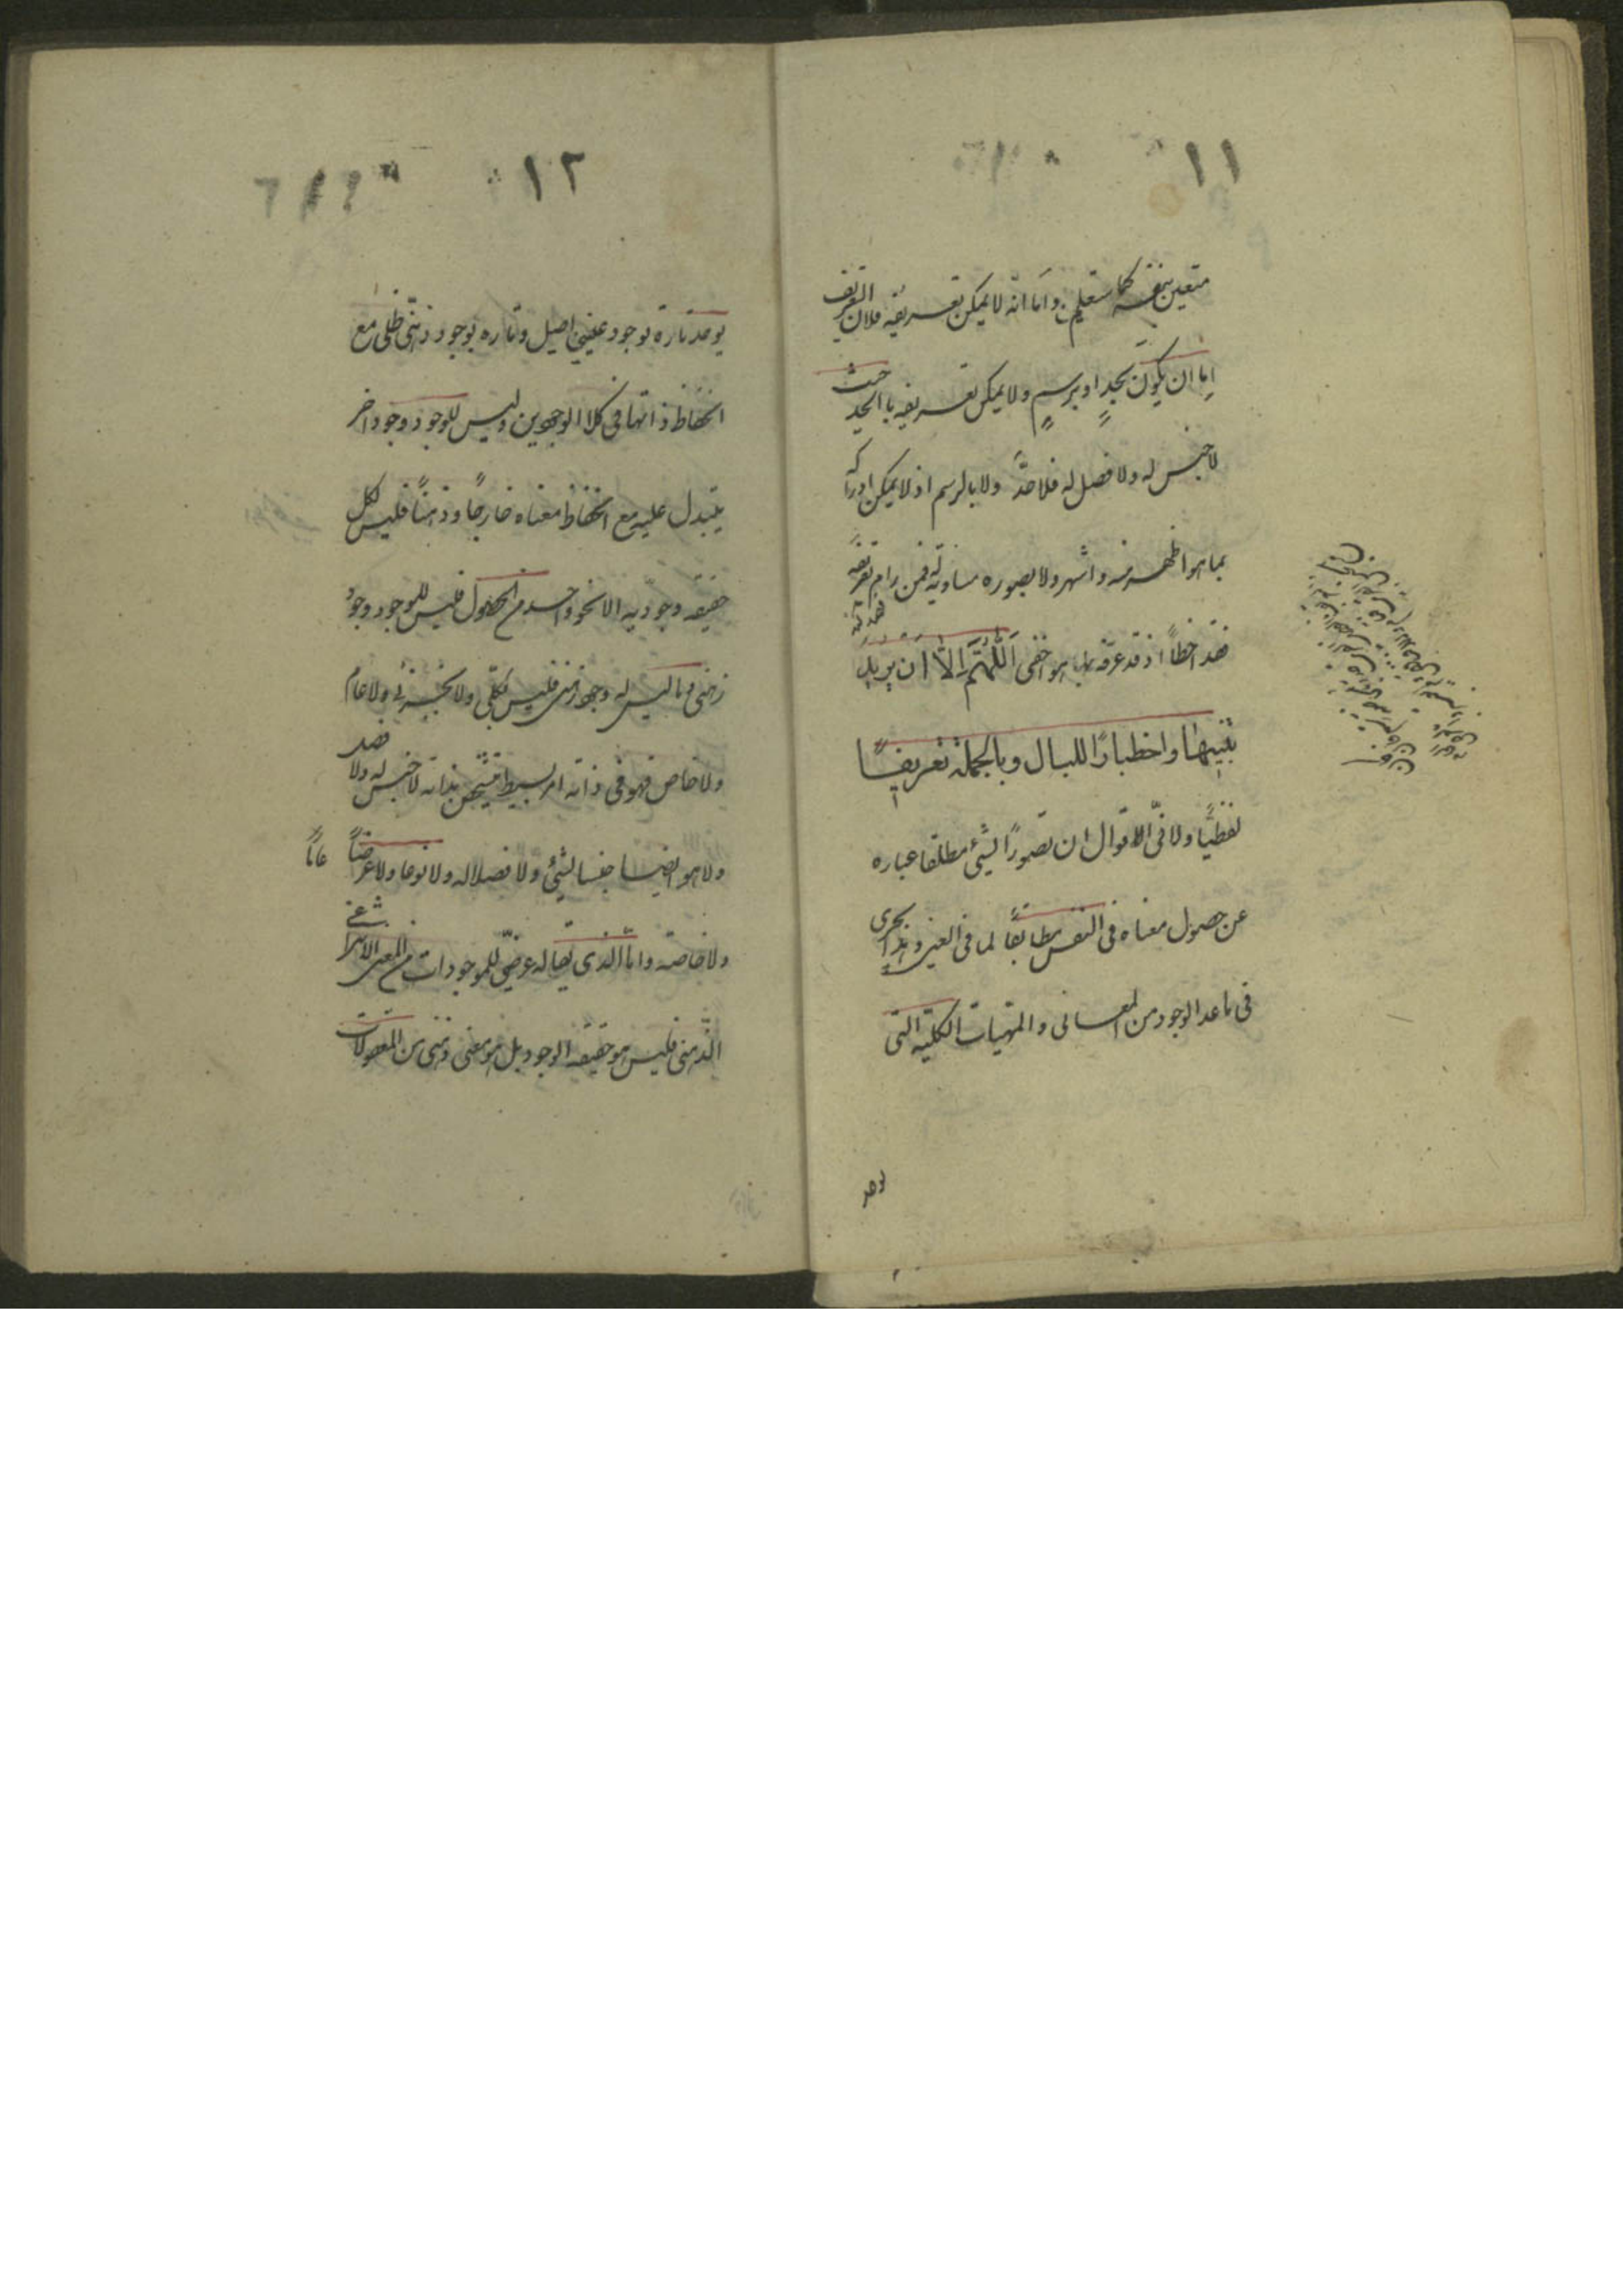 ١١
متعين بنفسه كما ستعلم و اما انه لا يمكن تعريفه فلان التعريف
اما ان يكون بحدٍ او برسمٍ ولا يمكن تعريفه بالحد حيث
لا جنس له ولا فصل له فلا حدّ ولا بالرسم اذ لا يمكن ادراكه
بما هو اظهر منه و اشهر ولا بصوره مساويه له فمن رام تعريفه
فقد اخطأ اذ قد عرفه بما هو اخفى اللّهمّ الّا ان يريد
تنبيها واخطبارًا للبال وبالجملة تعريفًا
لفظيًّا ولانّى اقول ان تصورًا لشئ مطلقا عباره
عن حصول معناه فى النفس مطابقًا لما فى العين وهذا يجرى
فى ماعدا الوجود من المعانى والمهيات الكلية التى
يوجد
١٢
يوجد تارة بوجود عينى اصيل وتاره بوجود ذهنّى ظلى مع
انحفاظ ذاتها فى كلا الوجودين وليس للوجود وجود اخر
يتبدل عليه مع انحفاظ معناه خارجًا وذهنًا فليس لكل
حقيقه وجوديه الا نحو واحد من الحصول فليس للوجود وجود
ذهنى وما ليس له وجود ذهنى فليس بكلّى ولا بجزئى ولا عام
ولا خاص فهو فى ذاته امر بسيط متشخّص بذاته لا جنس له ولا فصل
ولا هو ايضا جنسا لشئ ولا فصلا له ولا نوعا ولا عرضًا عامًا
ولا خاصة واما الذى يقال له عرضىّ للموجودات من المعنى الانتزاعى
الذّهنى فليس هو حقيقه الوجود بل هو معنى ذهنى من المعقولات